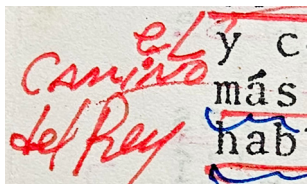 el
camino
del Rey
y c
más
hab